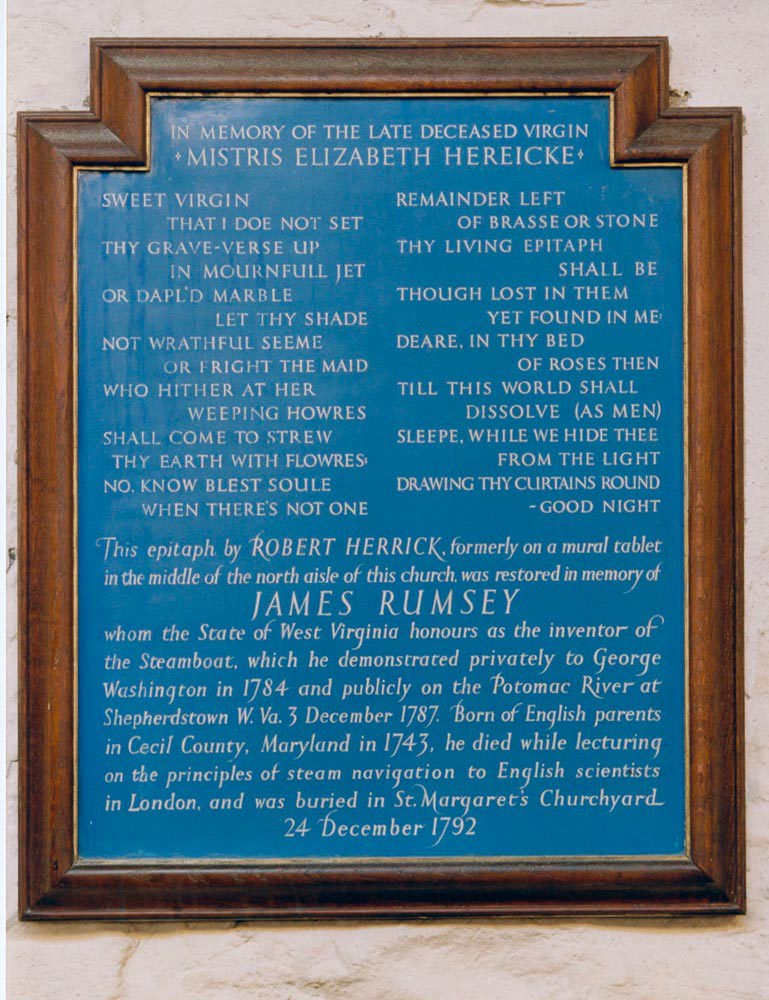 IN MEMORY OF THE LATE DECEASED VIRGIN
MISTRIS ELIZABETH HEREICKE
SWEET VIRGIN
THAT I DOE NOT SET
THY GRAVE-VERSE UP
IN MOURNFULL JET
OR DAPL'D MARBLE
LET THY SHADE
NOT WRATHFUL SEEME
OR FRIGHT THE MAID
WHO HITHER AT HER
WEEPING HOWRES
SHALL COME TO STREW
THY EARTH WITH FLOWRES:
NO, KNOW BLEST SOULE
WHEN THERE'S NOT ONE
REMAINDER LEFT
OF BRASSE OR STONE
THY LIVING EPITAPH
SHALL BE
THOUGH LOST IN THEM
YET FOUND IN ME:
DEARE, IN THY BED
OF ROSES THEN
TILL THIS WORLD SHALL
DISSOLVE (AS MEN)
SLEEPE, WHILE WE HIDE THEE
FROM THE LIGHT
DRAWING THY CURTAINS ROUND
- GOOD NIGHT
This epitaph by ROBERT HERRICK, formerly on a mural tablet
in the middle of the north aisle of this church, was restored in memory of
JAMES RUMSEY
whom the State of West Virginia honours as the inventor of
the Steamboat, which he demonstrated privately to George
Washington in 1784 and publicly on the Potomac River at
Shepherdstown W. Va. 3 December 1787. Born of English parents
in Cecil County, Maryland in 1743, he died while lecturing
on the principles of steam navigation to English scientists
in London, and was buried in St. Margaret's Churchyard
24 December 1792